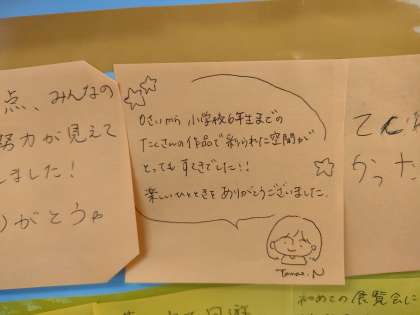 点、みんなの
努力が見えて
しました!
りがとうゅ
0さいから 小学校6年生までの
たくさんの作品で彩られた空間が
とっても すてきでした!!
楽しいひとときを ありがとうございました.
Tamao.N
かった
初めての展覧会に